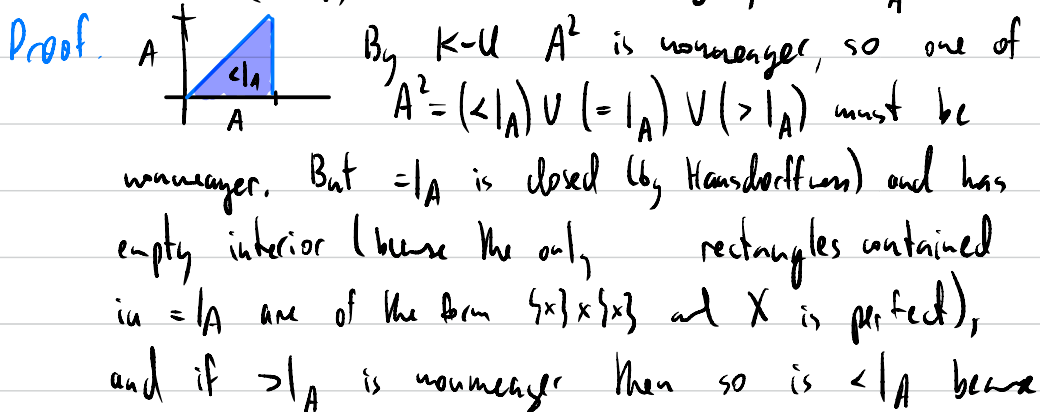 Proof. A <|A A By K-U A² is nonmeager, so one of
A² = (<|A) ∪ (=|A) ∪ (>|A) must be
nonmeager. But =|A is closed (by Hausdorffness) and has
empty interior (because the only rectangles contained
in =|A are of the form {x}×{x} and X is perfect),
and if >|A is nonmeager then so is <|A because